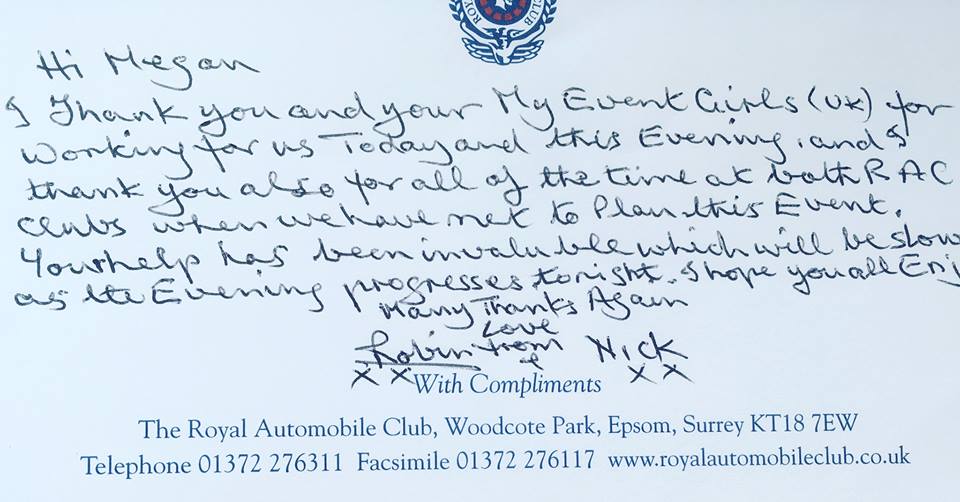 ROY CLUB
Hi Megan
I Thank you and your My Event Girls (UK) for
working for us Today and this Evening, and I
thank you also for all of the time at both RAC
clubs when we have met to Plan this Event.
Your help has been invaluble which will be slow
as the Evening progresses tonight. I hope you all Enj
Many Thanks Again
Love
Robin from Nick
x x With Compliments x x
The Royal Automobile Club, Woodcote Park, Epsom, Surrey KT18 7EW
Telephone 01372 276311 Facsimile 01372 276117 www.royalautomobileclub.co.uk